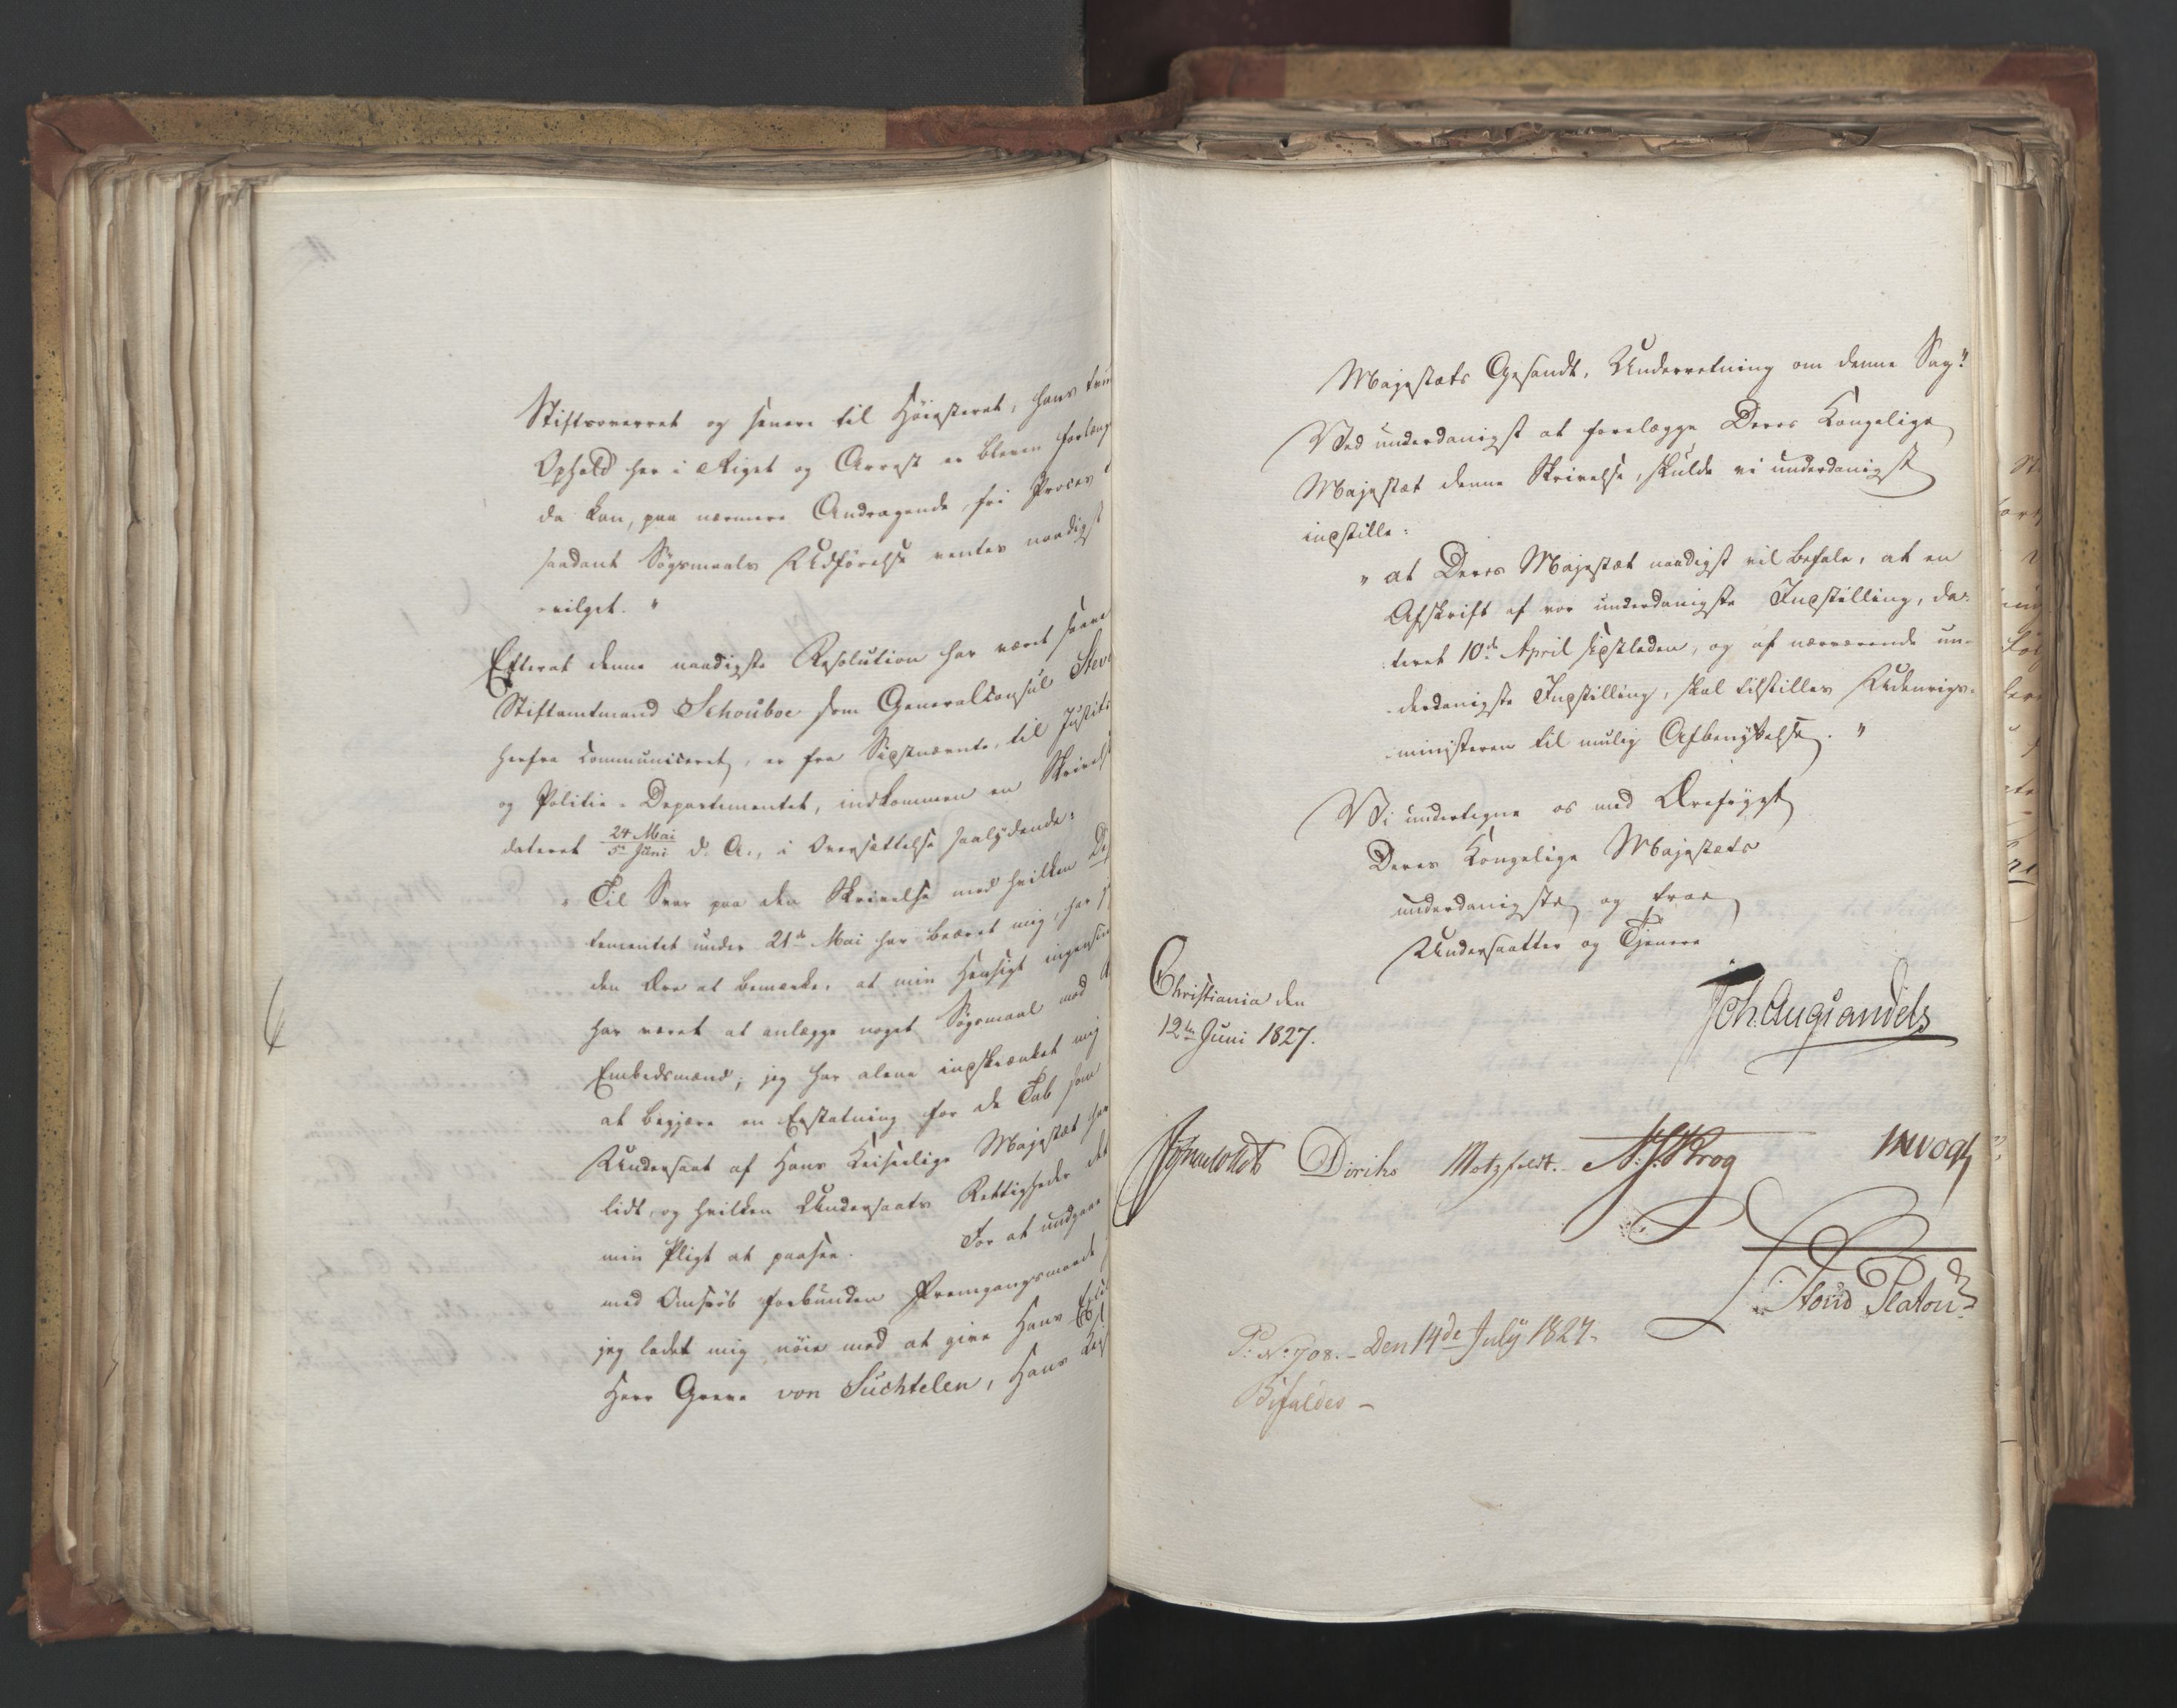 Stiftsoverret og senere til Høiesteret, hans
Ophold her i Riget og Arrest er bleven forlænge
da kan, paa nærmere Andragende, fri Proces
saadant Søgsmaals Udførelse ventes naadigst
-vilget. "
Efterat denne naadigste Resolution har været
Stiftamtmand Schouboe som Generalconsul
herfra communiceret, er fra Sidstnævnte, til Justits
og Politie-Departementet, indkommen en Skrivelse
dateret 24 Mai / 5te Juni d. A., i Oversættelse saalydende:
" Til Svar paa den Skrivelse med hvilken De
tementet under 21de Mai har beæret mig, har
den Ære at bemærke, at min Hensigt ingensin
har været at anlægge noget Søgsmaal mod
Embedsmænd; jeg har alene indskrænket mig
at begjære en Erstatning for de Tab som
Undersaat af Hans Keiserlige Majestæt har
lidt, og hvilken Undersaats Rettigheder det
min Pligt at paasee. For at undgaae
med Omsvøb forbunden Fremgangsmaade
jeg ladet mig nøie med at give Hans
Herr Greve von Suchtelen, Hans
Majestæts Gesandt, Underretning om denne Sag."
Ved underdanigst at forelægge Deres Kongelige
Majestæt denne Skrivelse, skulde vi underdanigst
indstille:
" at Deres Majestæt naadigst vil befale, at en
Afskrift af vor underdanigste Indstilling, da-
teret 10de April sidstleden, og af nærværende un-
-derdanigste Indstilling, skal tilstilles Udenrigs-
-ministeren til mulig Afbenyttelse. "
Vi undertegne os med Ærefrygt
Deres Kongelige Majestæts
underdanigste og troe
Undersaatter og Tjenere
Christiania den
12te Juni 1827.
Joh. Aug. Sandels
Diriks Motzfeldt. Krog Vogt
P: No: 708. - Den 14de July 1827.
Bifaldes -